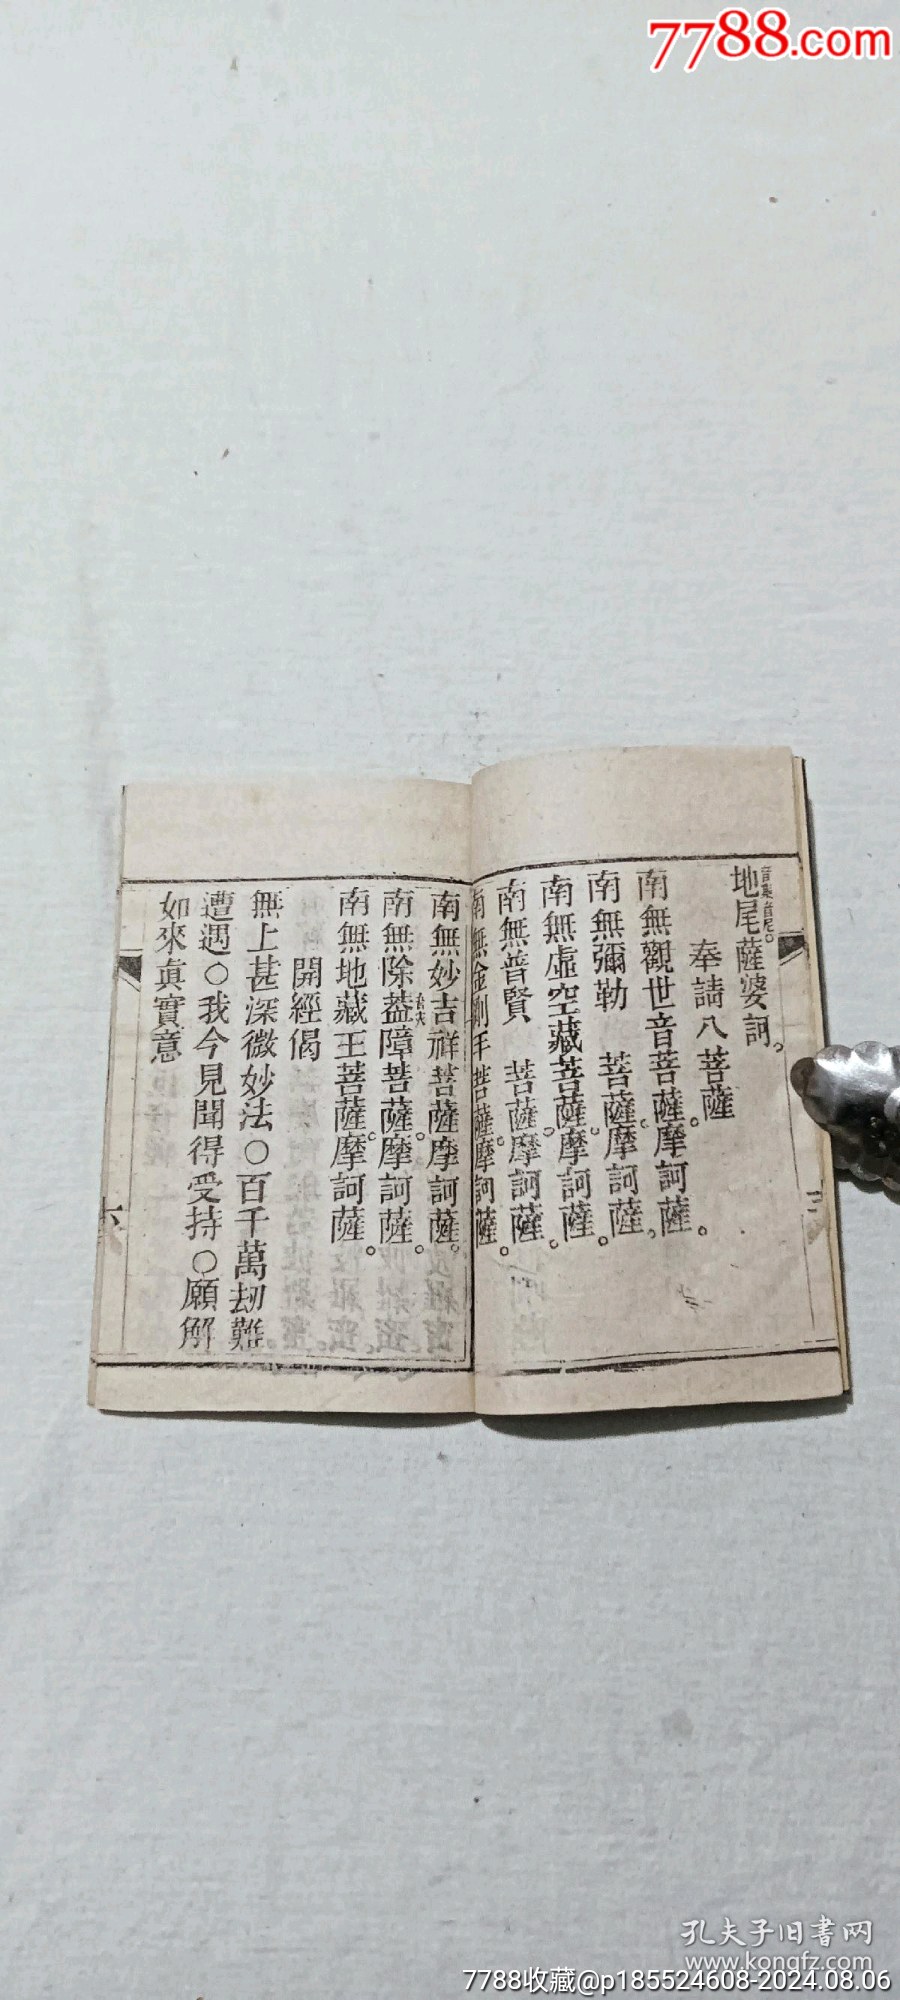 7788.com
地尾薩婆訶。
奉請八菩薩
南無觀世音菩薩摩訶薩。
南無彌勒菩薩。摩訶薩。
南無虛空藏菩薩摩訶薩。
南無普賢菩薩。摩訶薩。
南無金剛手菩薩摩訶薩。
南無妙吉祥菩薩摩訶薩。
南無除葢障菩薩。摩訶薩。
南無地藏王菩薩。摩訶薩。
開經偈
無上甚深微妙法○百千萬劫難
遭遇○我今見聞得受持○願解
如來眞實意
六
孔夫子旧书网
www.kongfz.com
7788收藏@p185524608-2024.08.06